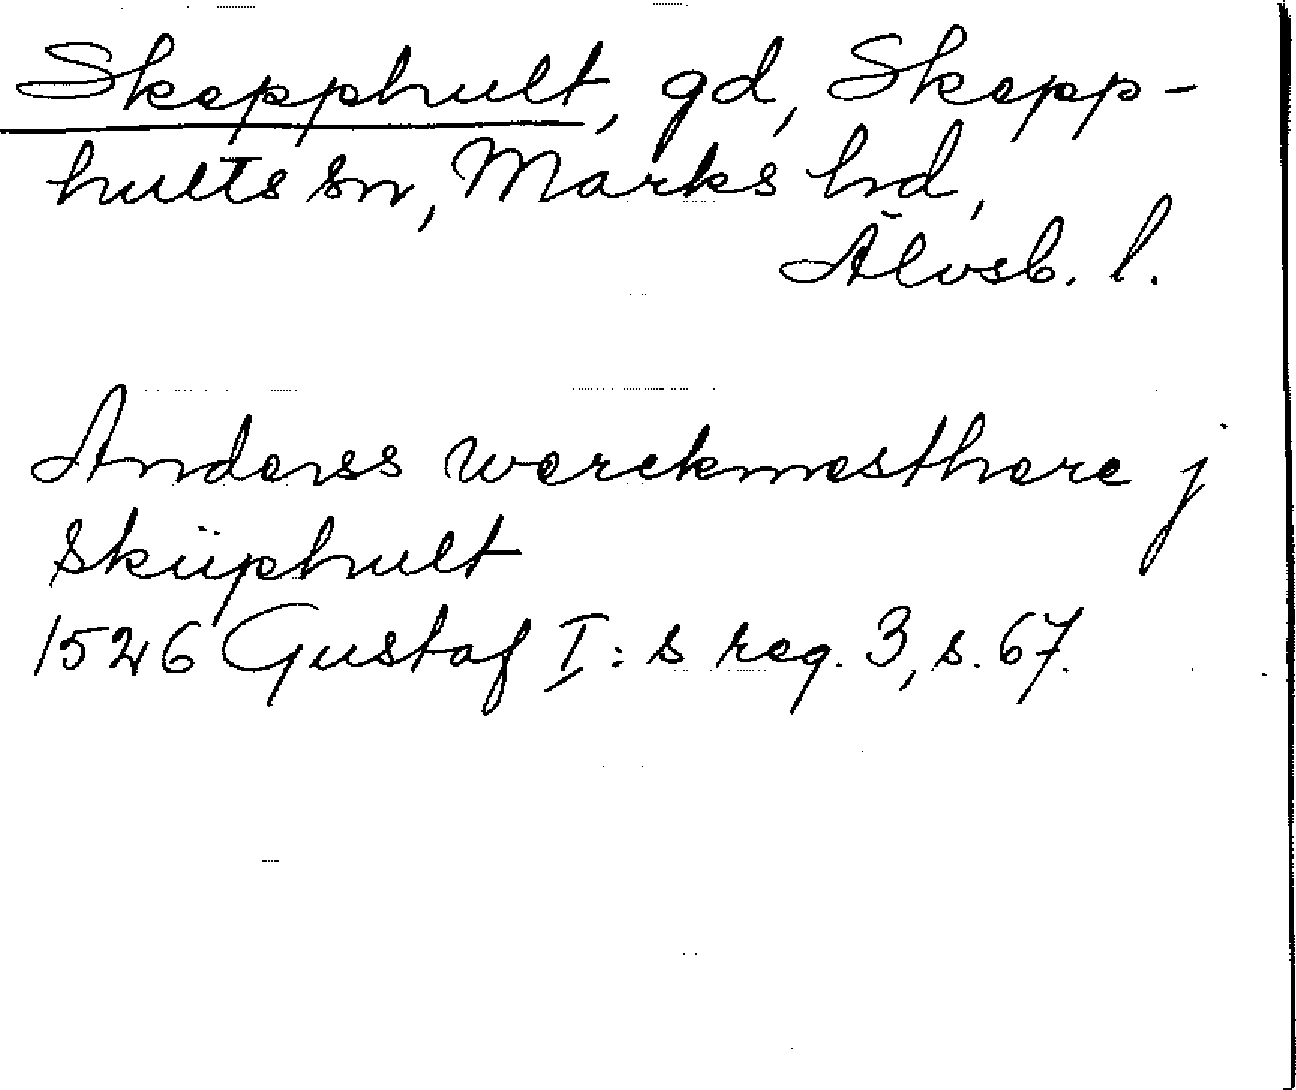 Skepphult, gd, Skepp-
hults sn, Marks hd,
Älvsb. l.
Anderss werckmesthere j
Sküphult
1526 Gustaf I:s reg. 3, s. 67.